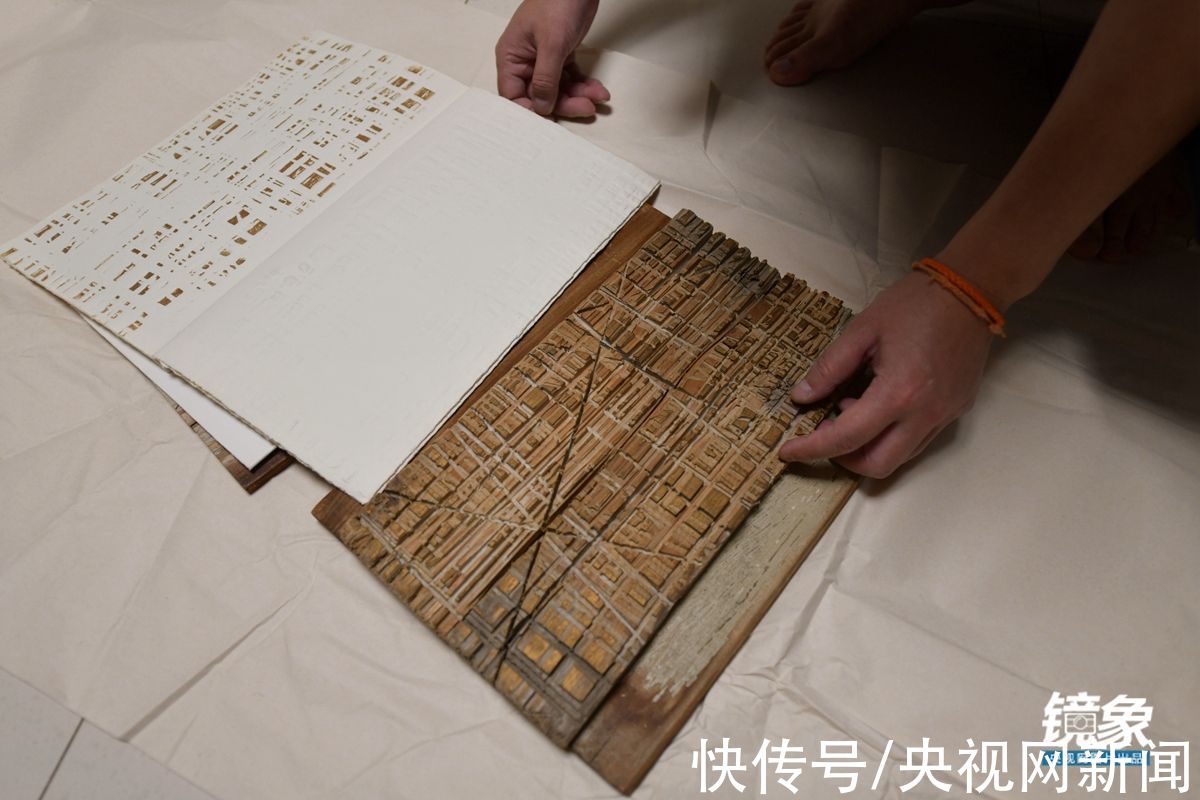 镜象
快传号/央视网新闻